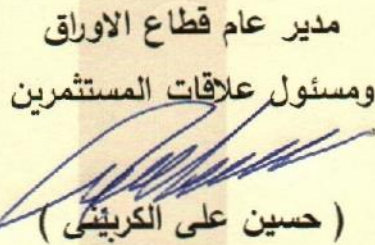 مدير عام قطاع الاوراق
ومسئول علاقات المستثمرين
( حسين على الكربيئى )